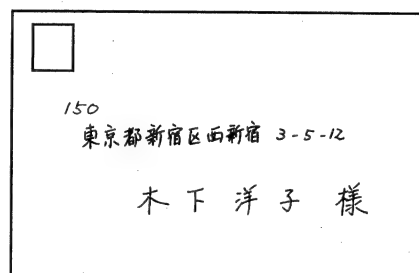 150
東京都新宿区西新宿 3-5-12
木下洋子 様